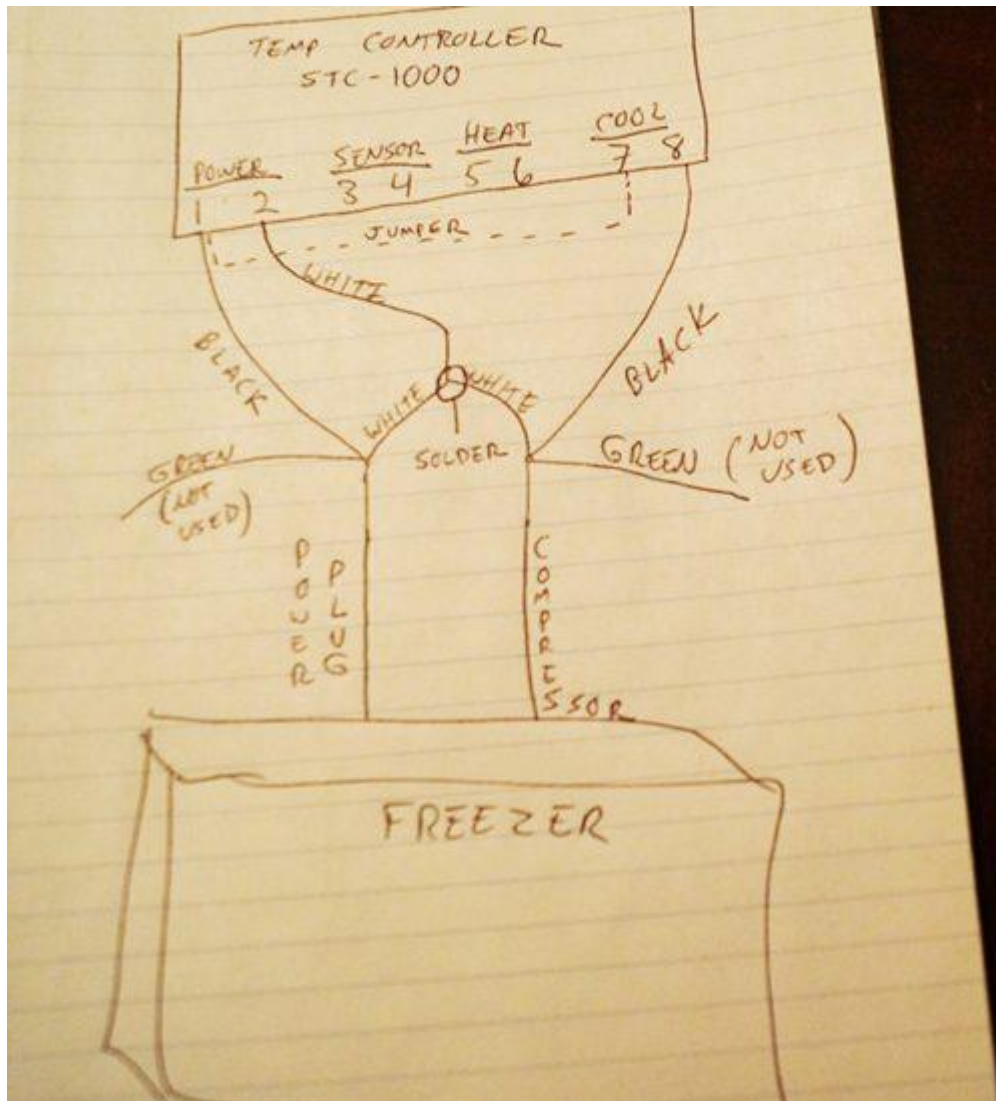 TEMP CONTROLLER
STC-1000
POWER SENSOR HEAT COOL
1 2 3 4 5 6 7 8
JUMPER
WHITE
BLACK
BLACK
WHITE
WHITE
SOLDER
GREEN
(NOT
USED)
GREEN (NOT
USED)
POWER
PLUG
COMPRESSOR
FREEZER